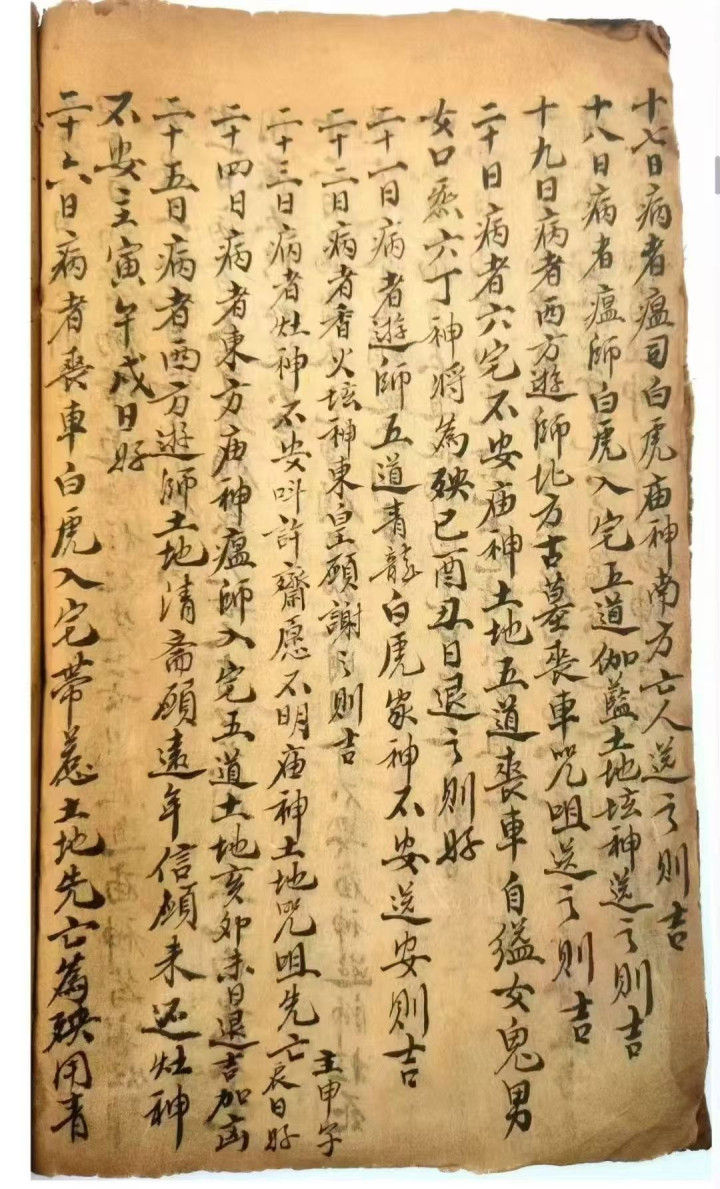 十七日病者瘟司白虎庙神南方亡人送之則吉
十八日病者瘟師白虎入宅五道伽藍土地坛神送之則吉
十九日病者西方遊師北方古墓喪車咒咀送之則吉
二十日病者六宅不安庙神土地五道喪車自缢女鬼男
女口䘲六丁神将為殃巳酉丑日退之則好
二十一日病者遊師五道青龍白虎家神不安送安則吉
二十二日病者香火坛神東皇願謝之則吉
二十三日病者灶神不安呌許齋愿不明庙神土地咒咀先亡主申子辰日好
二十四日病者東方庙神瘟師入宅五道土地亥卯未日退吉加凶
二十五日病者西方遊師土地清斋願遠年信願未还灶神
不安主寅午戌日好
二十六日病者喪車白虎入宅帶惹土地先亡為殃用青